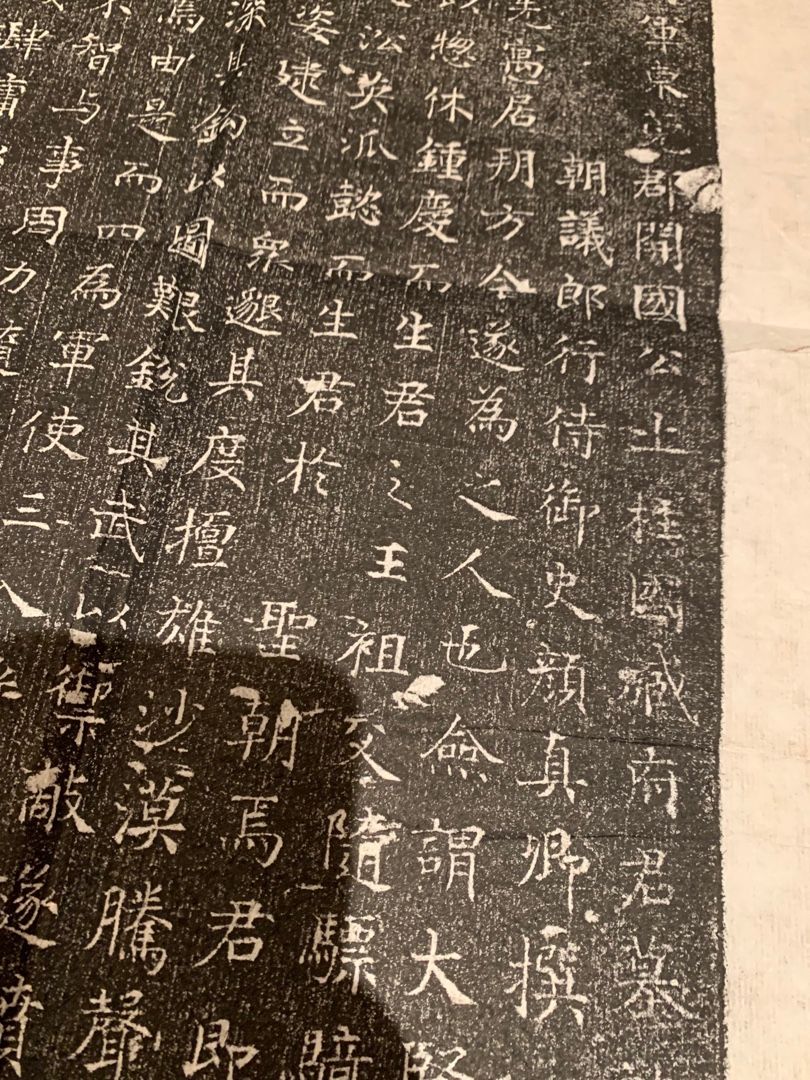 軍東莞郡開國公上柱國臧府君墓
朝議郎行侍御史顏真卿撰
先寓居朔方今遂為之人也僉謂大
惣休鍾慶而生君之王祖父隨驃騎
訟英派懿而生君於聖朝焉君即
姿建立而眾邈其度擅雄沙漠騰聲
深其鈎以圖艱銳其武以禦敵遂憤
焉由是而四為軍使三入
智与事周力
肆庸